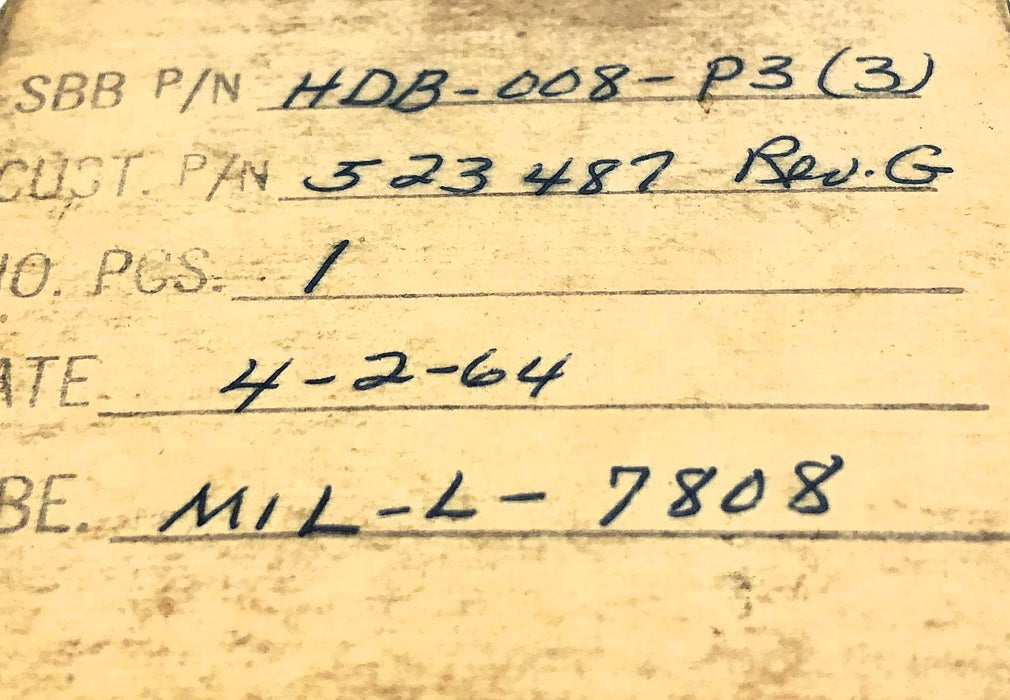 SBB P/N HDB-008-P3(3)
CUST. P/N 523487 Rev. G
NO. PCS. 1
ATE. 4-2-64
BE. MIL-L-7808